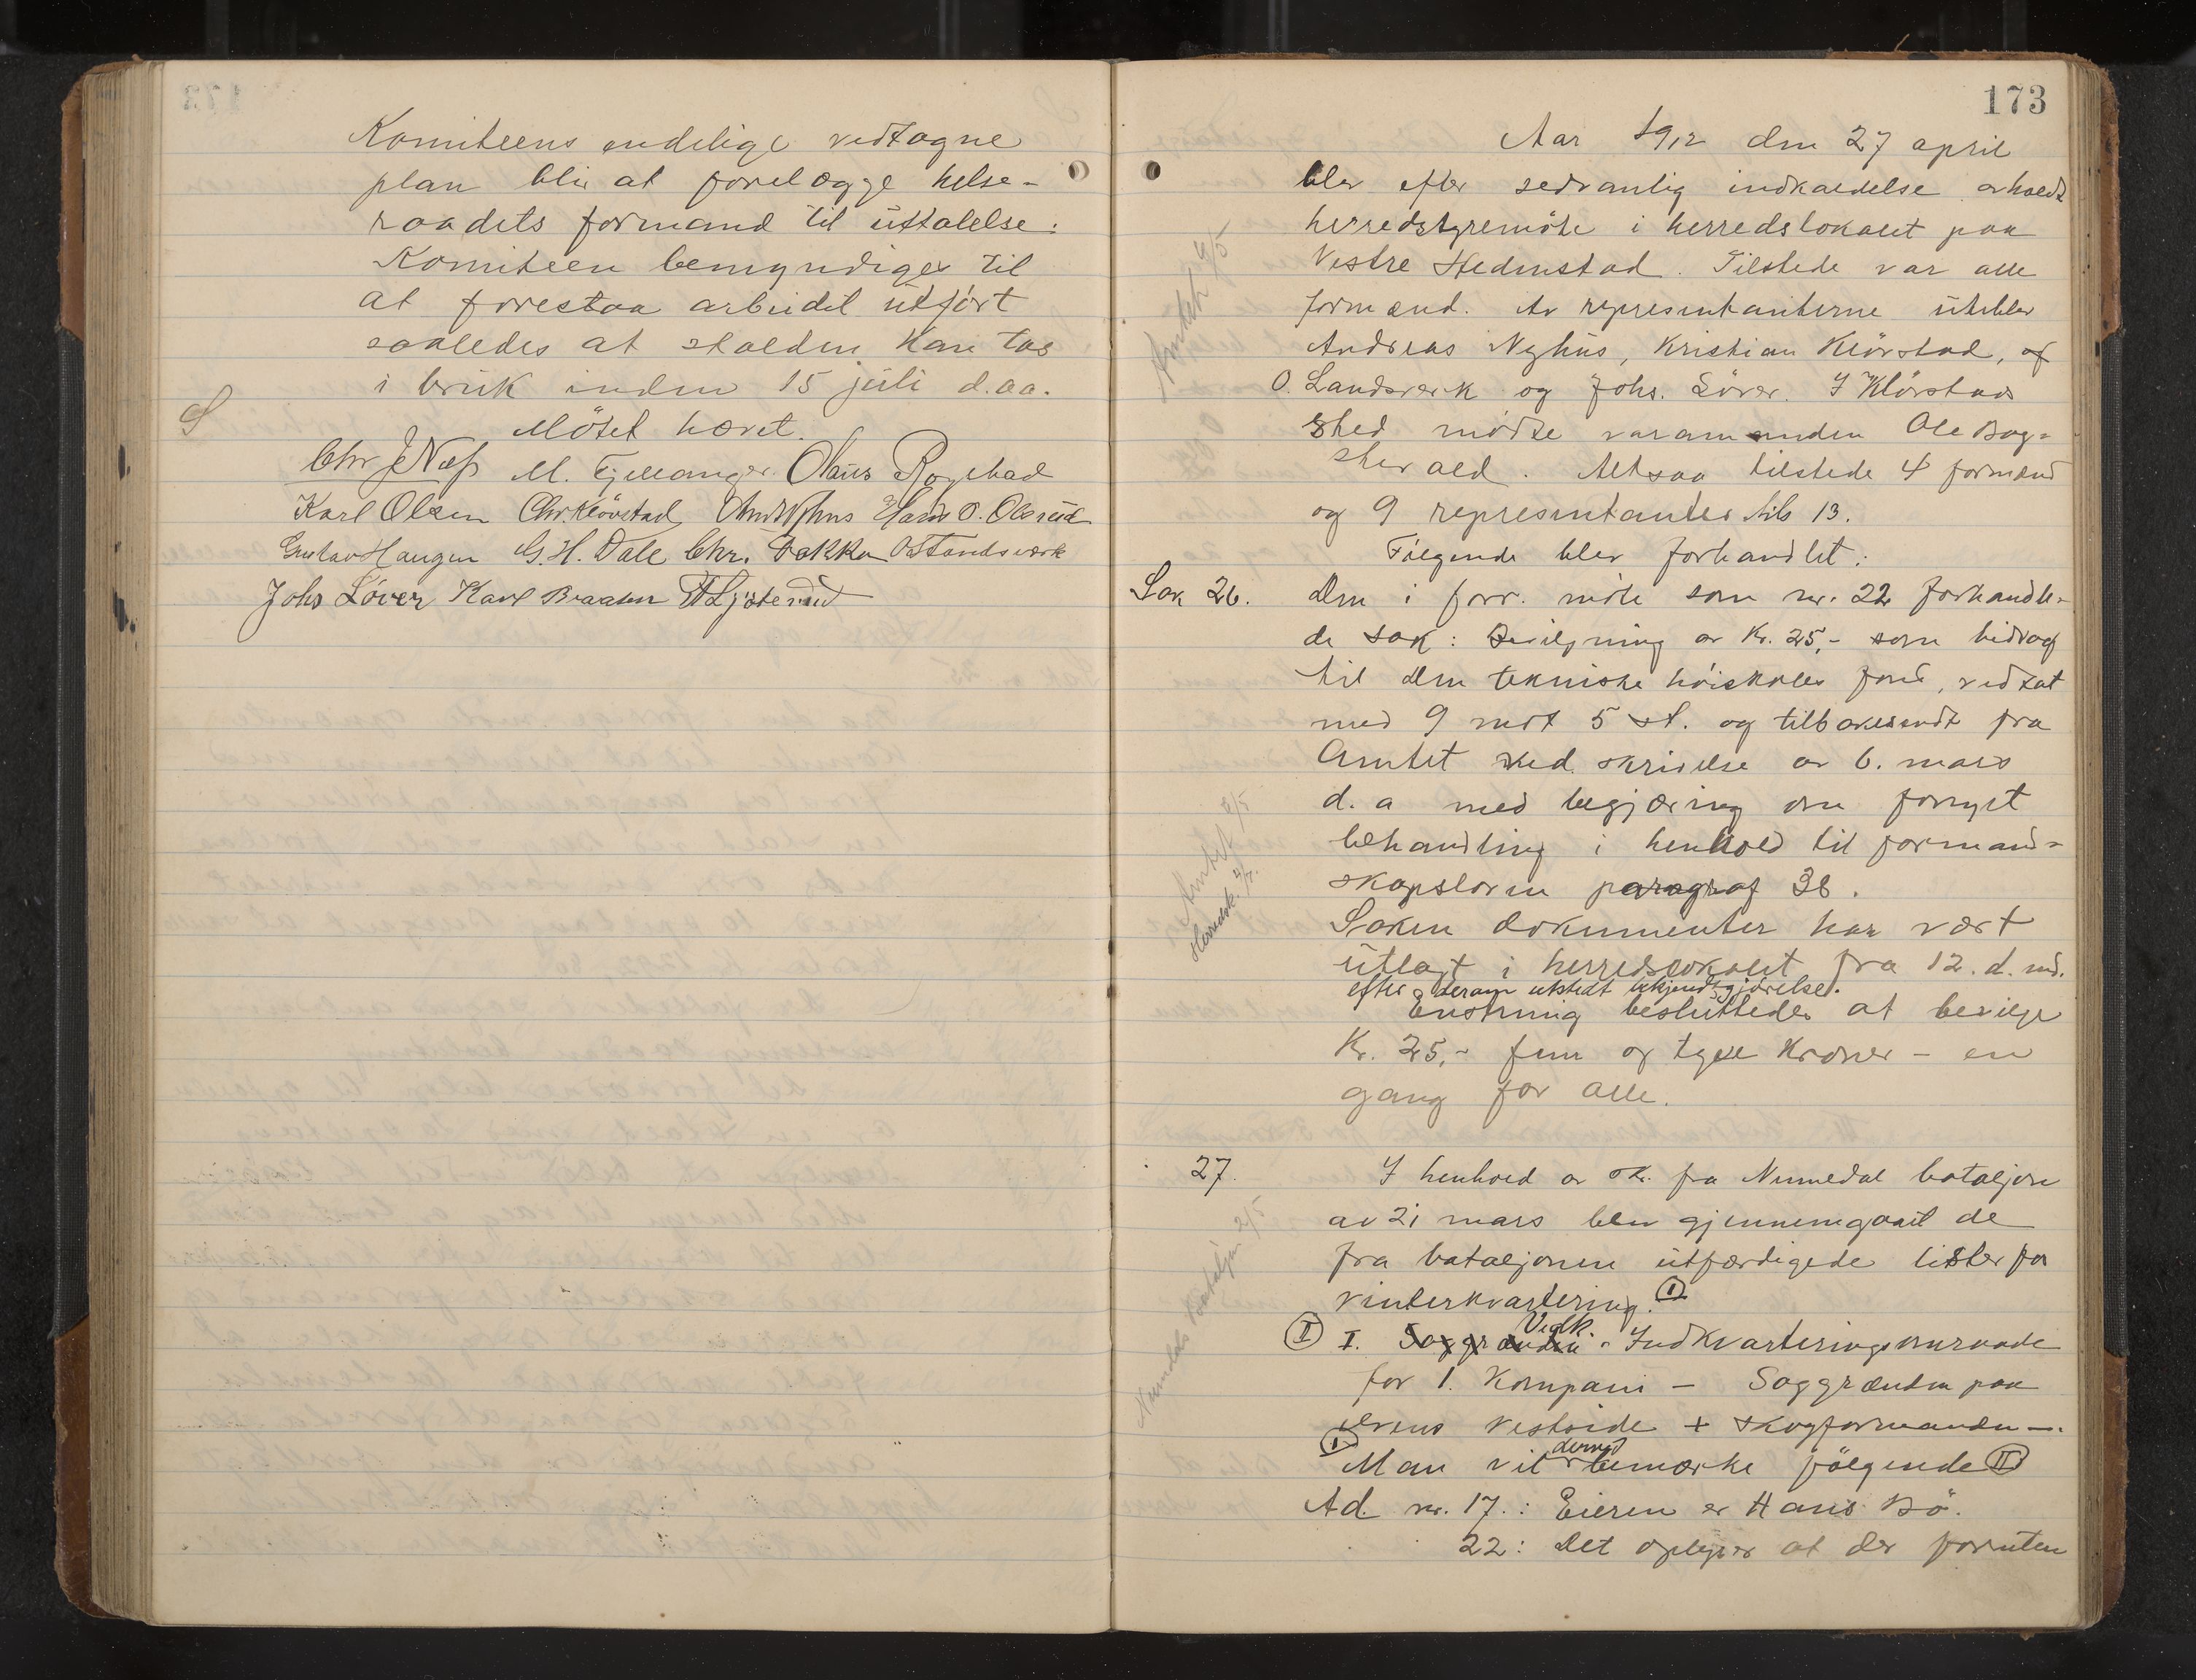 Komiteens endelige vedtagne
plan blir at forelægge helse-
raadets formand til uttalelse.
Komiteen bemyndiges til
at forestaa arbeidet utført
saaledes at stalden kan tas
i bruk inden 15 juli d.aa.
Møtet hævet.
Chr J Næss M. Fjellanger Olaus
Karl Olsen Chr. Klövstad And Nyhus Hans O. Olsrud
Gustav Haugen G. H. Dale Chr. Bakka O Landsværk
Johs Löver Karl Braaten
173
Aar 1912 den 27 april
blev efter sedvanlig indkaldelse avholdt
herredstyremöte i herredslokalet paa
Vestre Hedenstad. Tilstede var alle
formænd. Av representanterne uteblev
Andreas Nyhus, Kristian Klövstad, af
O. Landsverk og Johs. Löver. I Klövstads
sted mødte varamanden Ole Bog-
sterald. Altsaa tilstede 4 formænd
og 9 representanter tils 13.
Følgende blev forhandlet:
Sak 26. Den i forr. möte som nr. 22 forhandle-
de sak: Bevilgning av Kr. 25,- som bidrag
til den tekniske høiskoles fond, vedtat
med 9 mot 5 st. og tilbakesendt fra
Amtet ved skrivelse av 6. mars
d. a med begjæring om fornyet
behandling i henhold til formand-
skapsloven paragraf 38.
Saken dokumenter har vært
utlagt i herredslokalet fra 12. d. md.
efter derom utstedt bekjendtgjørelse.
Enstemmig besluttedes at bevilge
Kr. 25,- fem og tyve Kroner - en
gang for alle.
27. I henhold av sk. fra Numedal bataljon
av 21 mars blev gjennemgaat de
fra bataljonen utfærdigede lister for
vinterkvartering. I
Vedk.
II I. Saggrænden - Indkvarteringsomraade
for 1. Kompani - Saggrænden paa
elvens vestside + skogformanden -.
I
derved
Man vil bemærke følgende II
Ad. nr. 17.: Eieren er Hans Bö.
22: Det oplyses at der foruten
Amtet 4/5
Amtet 2/5
Numedals Bataljon 2/5